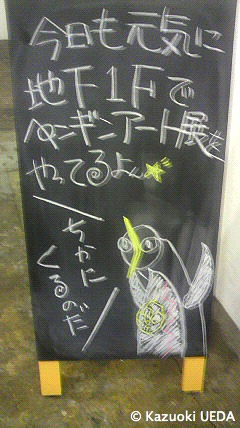 今日も元気に
地下1Fで
ペンギンアート展を
やってるよん
ちかに
くるのだ
© Kazuoki UEDA